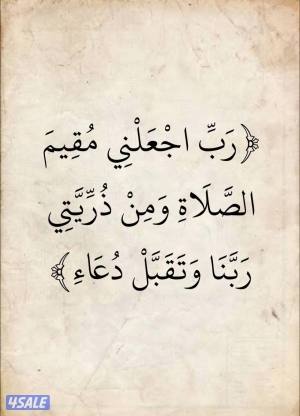 ﴿رَبِّ اجْعَلْنِي مُقِيمَ
الصَّلَاةِ وَمِنْ ذُرِّيَّتِي
رَبَّنَا وَتَقَبَّلْ دُعَاءِ﴾
4SALE